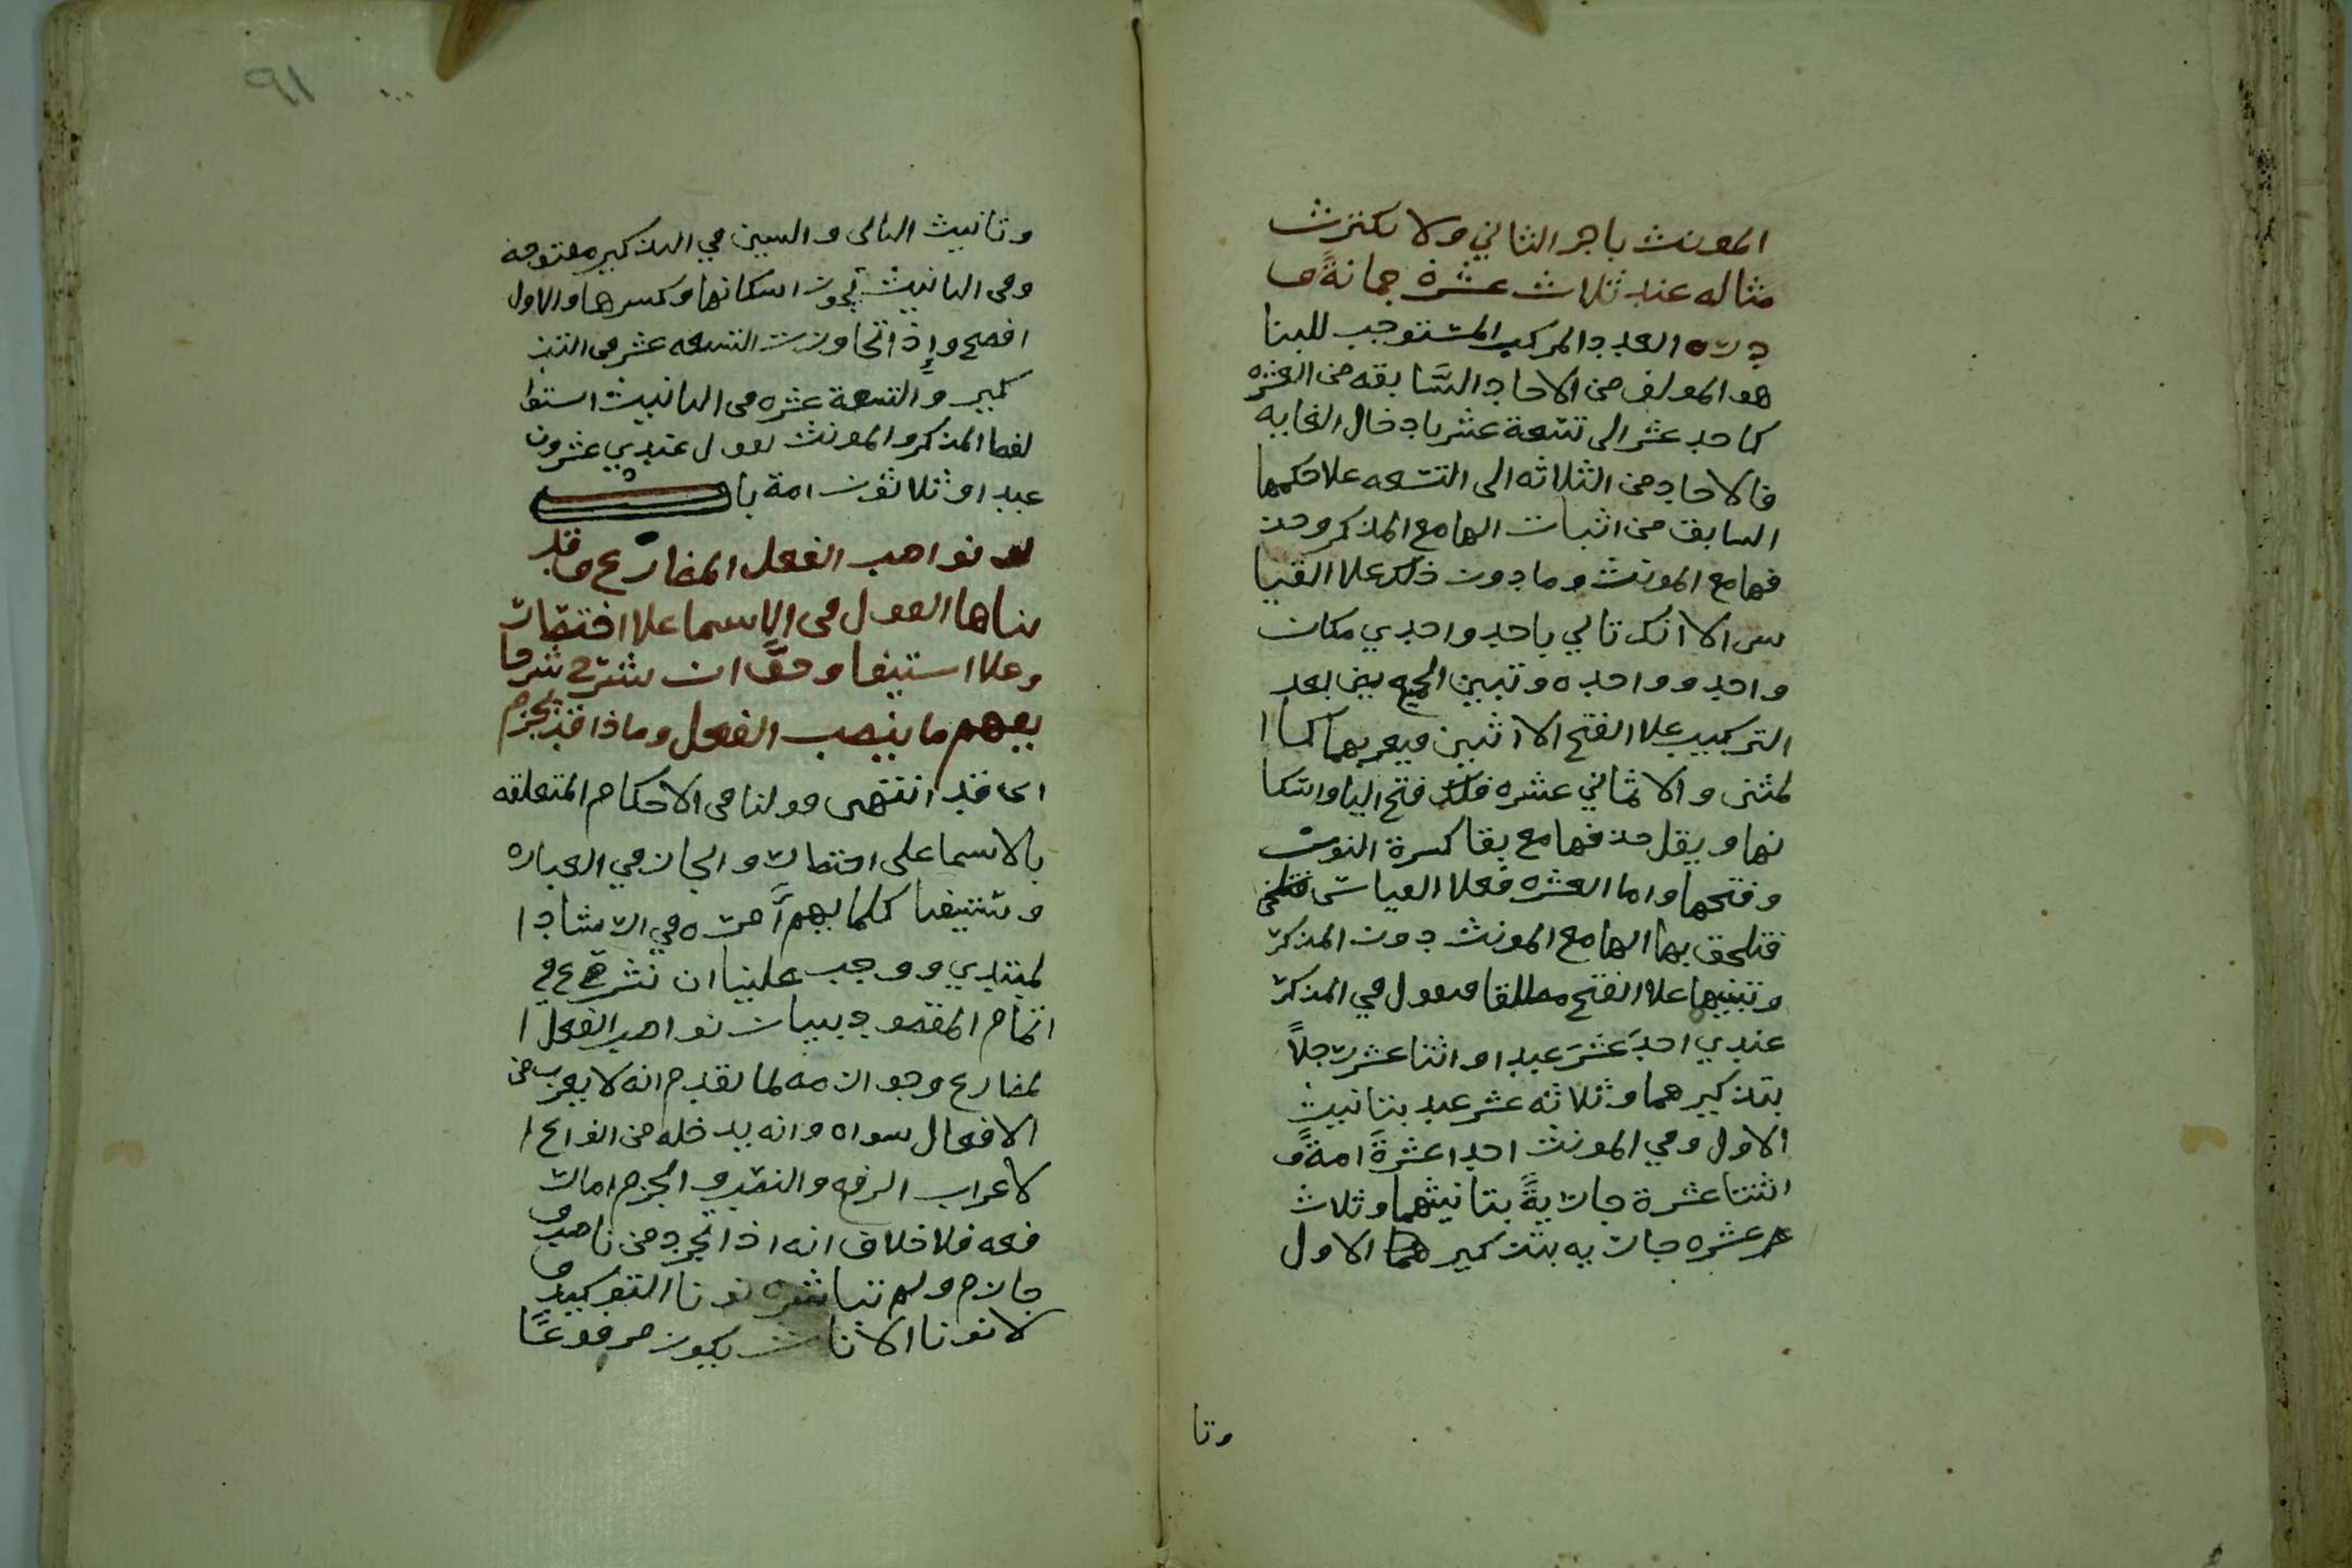 المونث باخر الثاني ولا تكترث
مثاله عندي ثلاث عشرة جمانةً و
درة العدد المركب المستوجب للبنا
هو المولف من الاحاد السَّابقه من العشره
كاحد عشر الى تسعة عشر بادخال الغايه
فالاحاد من الثلاثه الى التسعه علا حكمها
السابق من اثبات الها مع المذكر وحذ
فها مع المونث وما دون ذلك علا القيا
س الا انك تاتي باحد واحدي مكان
واحد وواحده وتبين الجميع بين بعد
التركيب علا الفتح الا اثنين فيعربهما كما ا
لمثنى والا ثماني عشره فلك فتح اليا واسكا
نها ويقل حذفها مع بقا كسرة النون
وفتحها واما العشره فعلا القياس
فتلحق بها الها مع المونث دون المذكر
وتبنيها علا الفتح مطلقا فيقول في المذكر
عندي احدَ عشَرَ عبدا واثنا عشر رجلاً
بتذكيرهما وثلاثه عشر عبد بتانيث
الاول وفي المونث احدا عشرةَ امةً و
اثنتا عشرة جاريةً بتانيثهما وثلاث
عشره جاريه بتذكير الاول
وتا
٩١
وتانيث الثاني والسين في التذكير مفتوحه
وفي التانيث يجوز اسكانها وكسرها والاول
افصح وإذا تجاوزت التسعه عشر في التذ
كير والتسعة عشره في التانيث استوا
لفظ المذكر والمونث يقول عندي عشرون
عبدا وثلاثون امة باب
نواصب الفعل المضارع وقد
تناها القول في الاسما علا اختصار
وعلا استيفا وحقَّ ان نشرح شرحا
يفهم ما ينصب الفعل وماذا قد يجزم
اي قد انتهى قولنا في الاحكام المتعلقه
بالاسما على اختصار وايجاز في العباره
وستيفا كلما يهم امره في ارشاد ا
لمبتدي ووجب علينا ان نشرع في
اتمام المقصود ببيان نواصب الفعل ا
لمضارع وجوازمه لما تقدم انه لا يعرب من
الافعال سواه وانه يدخله من انواع ا
لاعراب الرفع والنصب والجزم اما ر
فعه فلا خلاف انه اذا تجرد من ناصب و
جازم ولم تباشره نونا التوكيد و
لا نونا الاناث يكون مرفوعًا